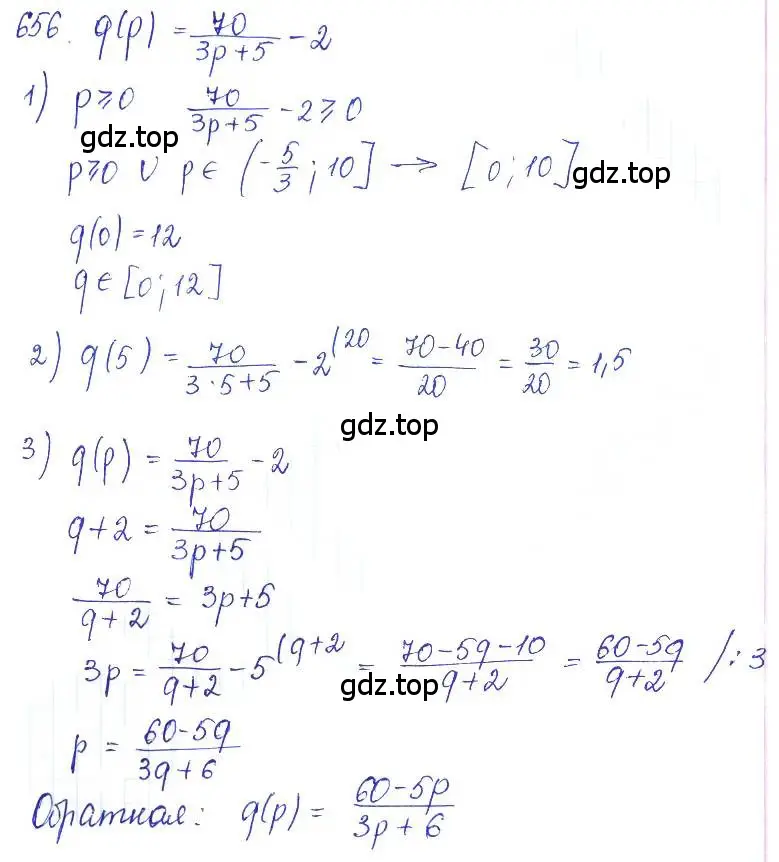 656. q(p) = 70/(3p+5) - 2
1) p⩾0 70/(3p+5) - 2 ⩾ 0
gdz.top
p⩾0 ∪ p∈ (-5/3 ; 10] → [0; 10]
gdz.top
q(0) = 12
q ∈ [0; 12]
2) q(5) = 70/(3·5+5) - 2^(20 = (70-40)/20 = 30/20 = 1,5
gdz.top
3) q(p) = 70/(3p+5) - 2
q+2 = 70/(3p+5)
70/(q+2) = 3p+5
3p = 70/(q+2) - 5^(q+2 = (70-5q-10)/(q+2) = (60-5q)/(q+2) /:3
gdz.top
p = (60-5q)/(3q+6)
Обратная: q(p) = (60-5p)/(3p+6)